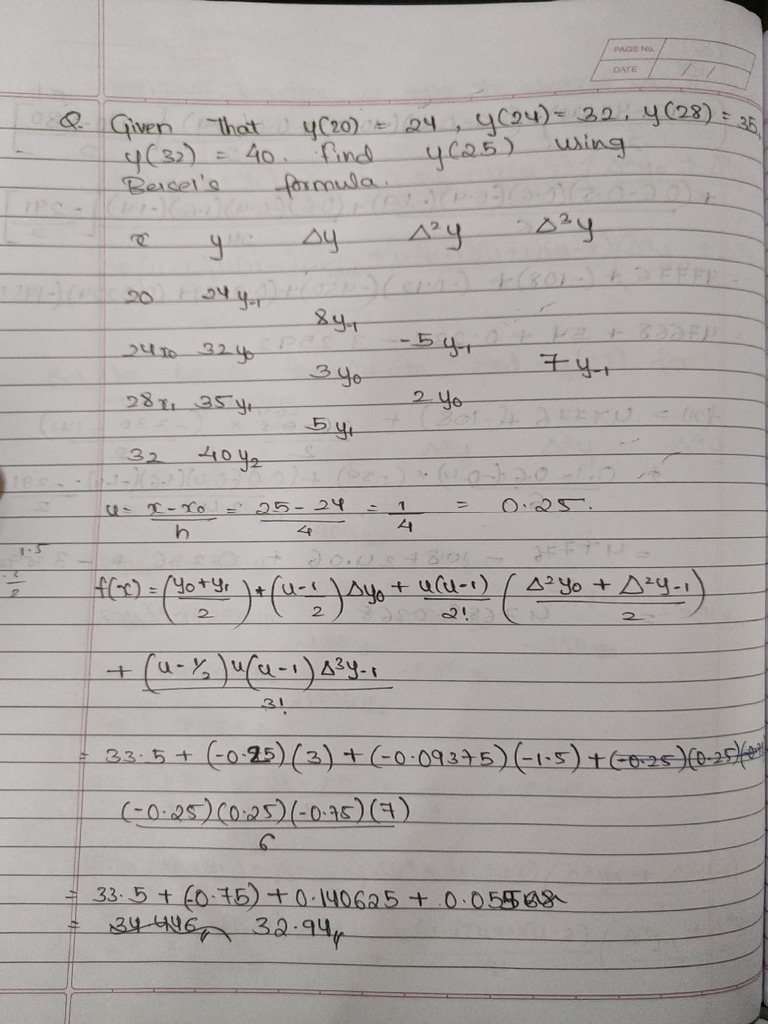 PAGE No.
DATE / /
Q. Given That y(20) = 24, y(24) = 32, y(28) = 35,
y(32) = 40. Find y(25) using
Bessel's formula.
x y Δy Δ²y Δ³y
20 24y₋₁
8y₋₁
24x₀ 32y₀ -5y₋₁
3y₀ 7y₋₁
28x₁ 35y₁ 2y₀
5y₁
32 40y₂
u = x-x₀/h = 25-24/4 = 1/4 = 0.25.
1.5
2
f(x) = (y₀+y₁/2) + (u-1/2) Δy₀ + u(u-1)/2! (Δ²y₀ + Δ²y₋₁/2)
+ (u-1/2)u(u-1) Δ³y₋₁/3!
= 33.5 + (-0.25)(3) + (-0.09375)(-1.5) + (-0.25)(0.25)
(-0.25)(0.25)(-0.75)(7)/6
= 33.5 + (-0.75) + 0.140625 + 
= 34.446 32.94